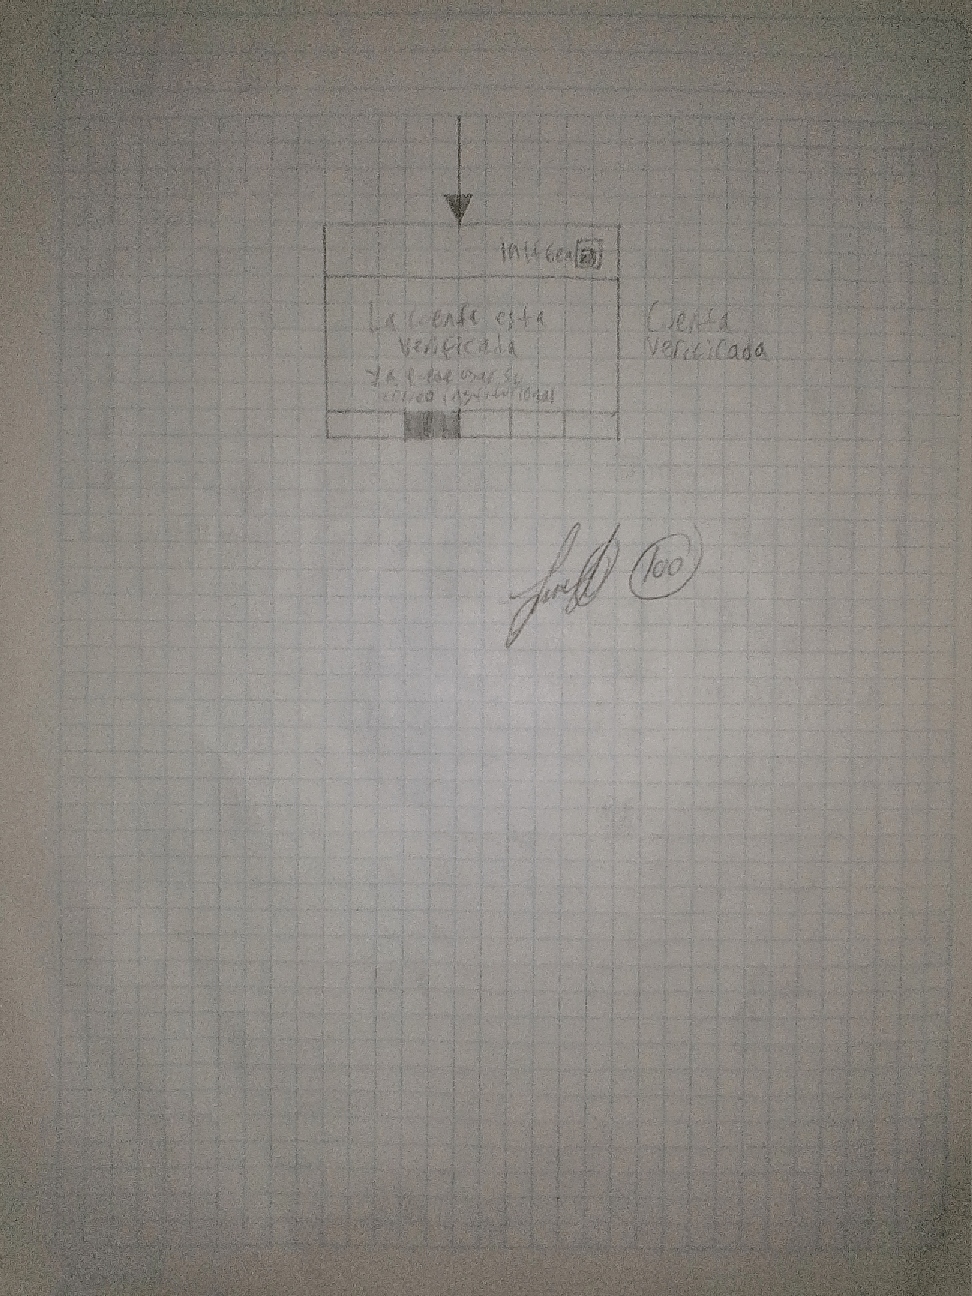 La cuenta esta
verificada
ya que usar su
correo institucional
Cuenta
Verificada
100